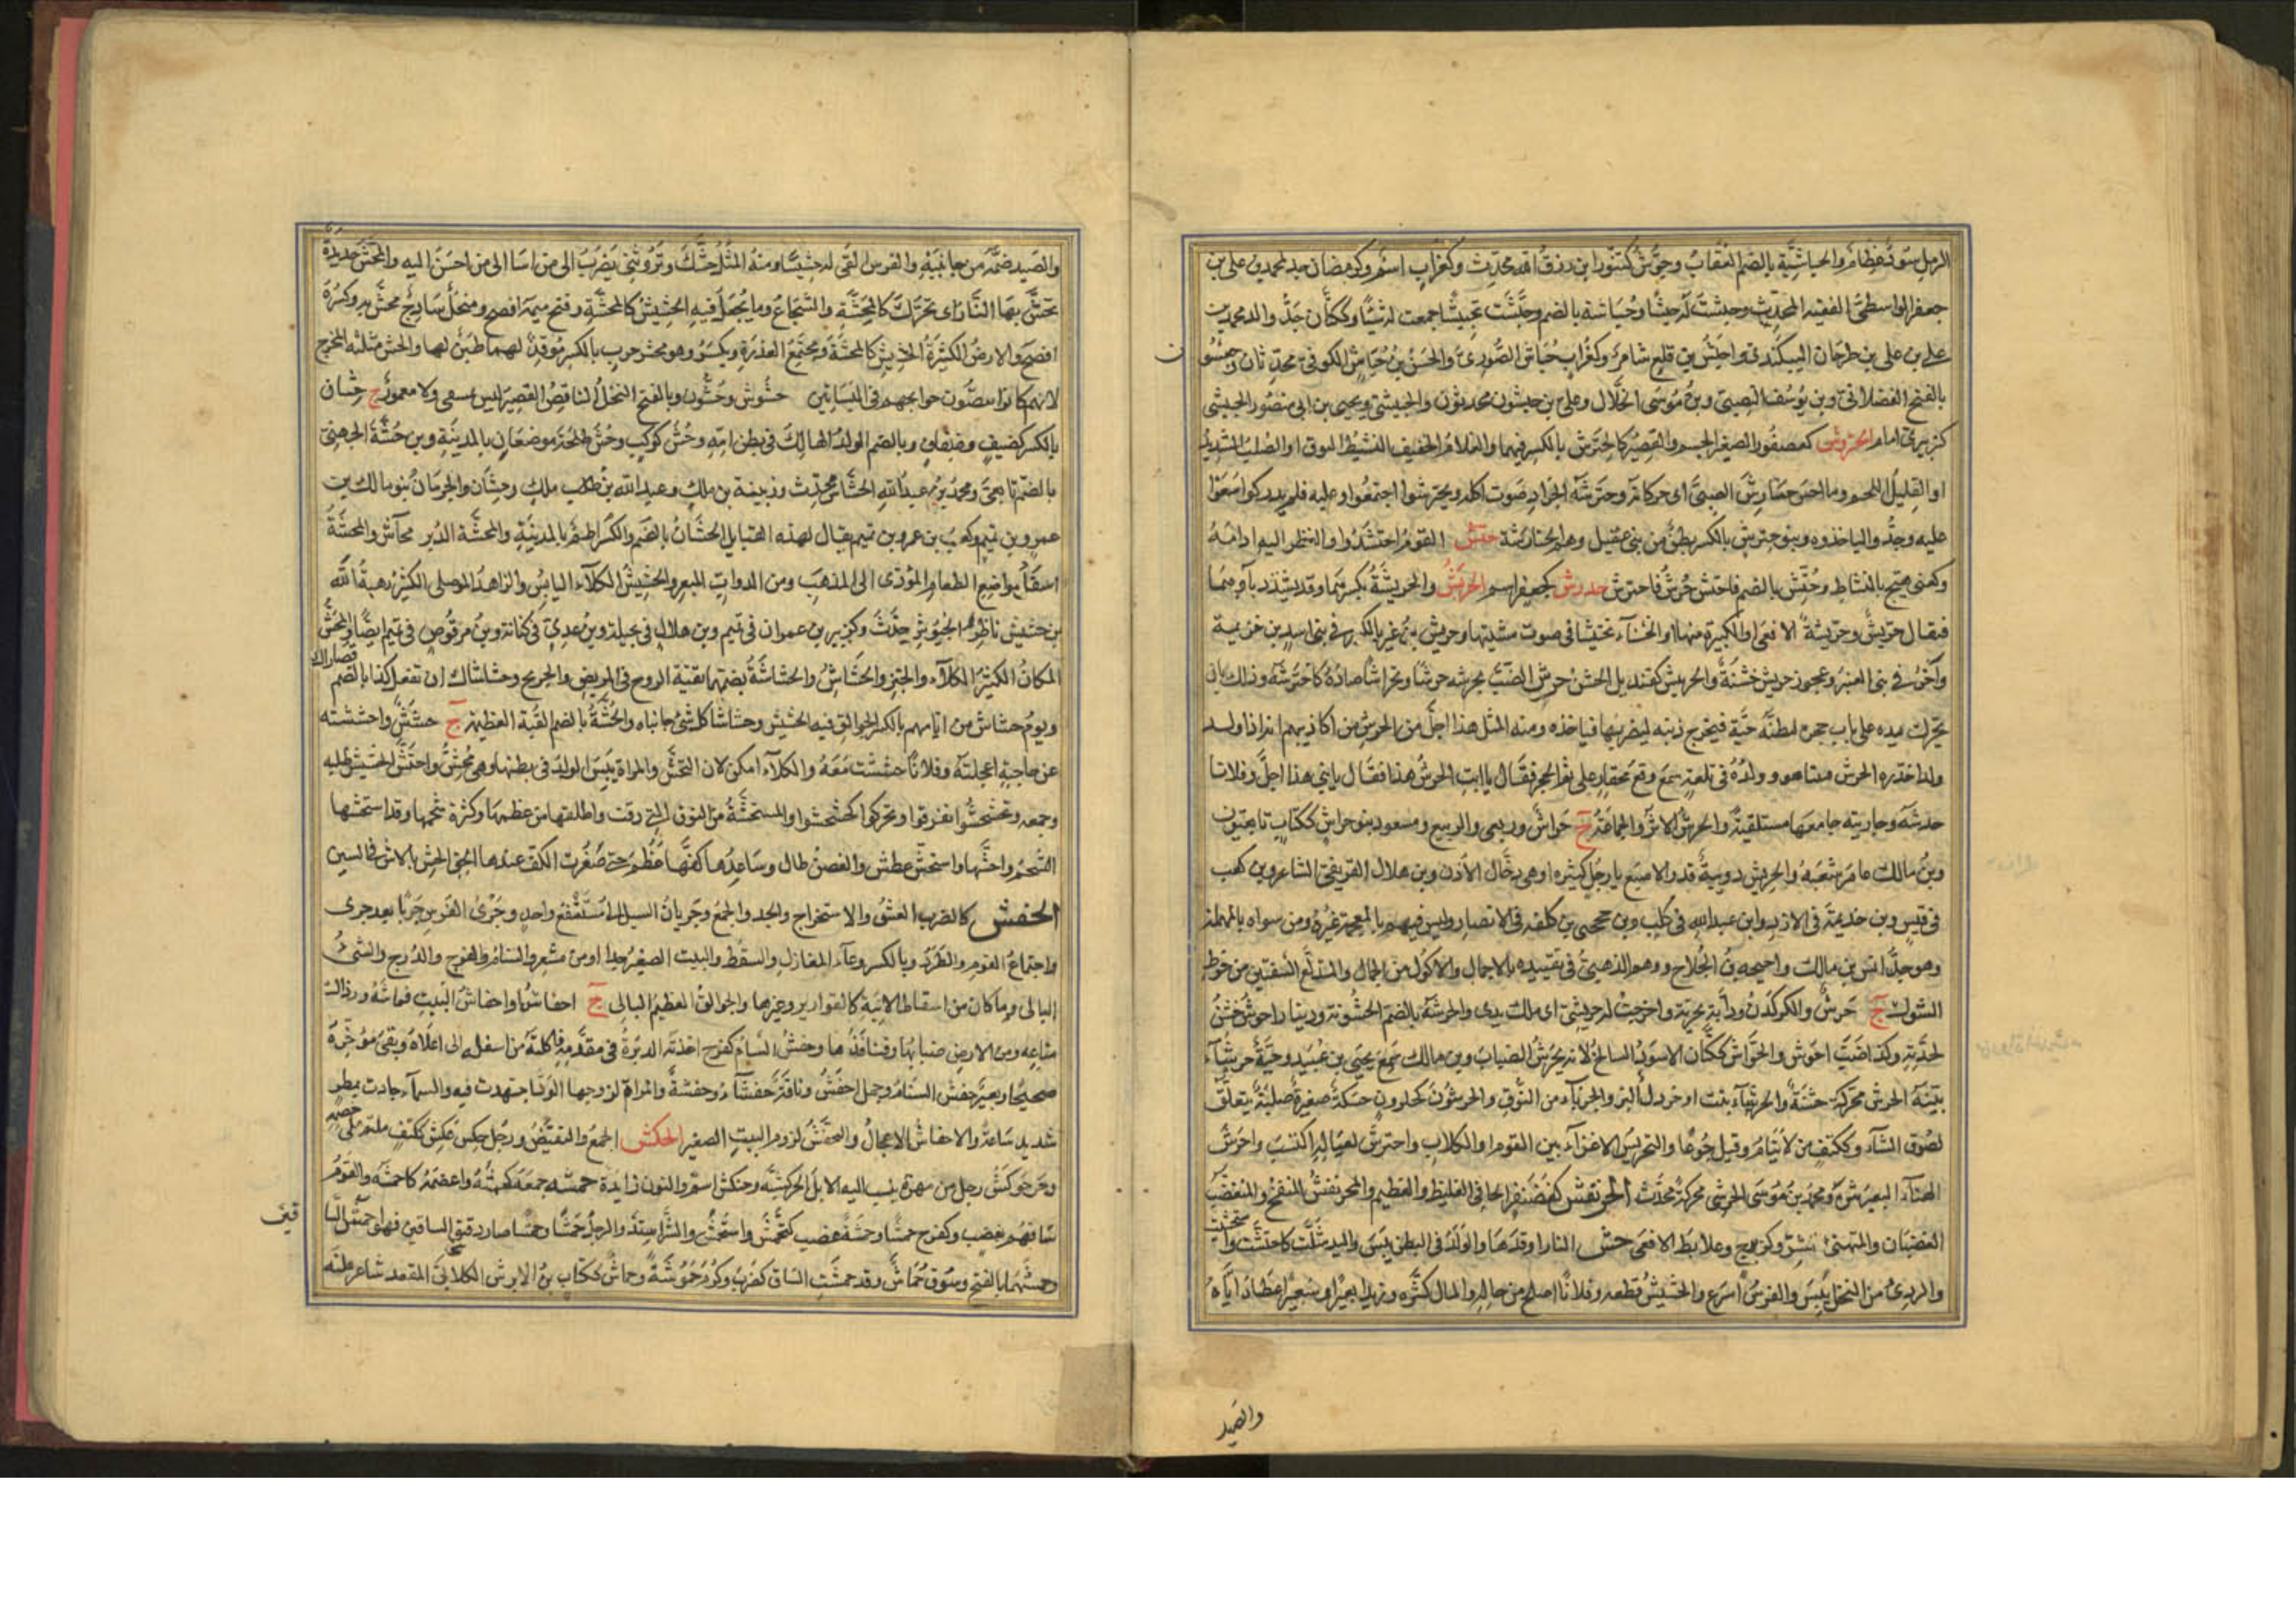 الرمل سود عظام والحباشية بالضم العقاب وحبوش كتنور ابن رزق الله محدث وكغراب اسم وكرمضان جد لمحمد بن علي بن
جعفر الواسطي الفقيه المحدث وحبشت له حبشا وحباشة بالضم وحبشت تحبيشا جمعت له شيئا وككتان جد والد محمد بن
علي بن علي بن طرخان البيكندي واحبش بن قلع شاعر وكغراب حباش الصوري والحسن بن حباش الكوفي محدثان وحبشون
بالفتح الفضلاني وبن يوسف النصيبي وبن موسى الخلال وعلي بن حبشون محدثون والحبشي ويحيى بن ابي منصور الحبيشي
كزبيري امام الحتروش كعصفور الصغير الجسم والقصير كالحترش بالكسر فيهما والغلام الخفيف النشيط النزق او الصلب الشديد
او القليل اللحم وما احسن حتارش الصبي اي حركاته وحترشة الجراد صوت اكله وتحترشوا اجتمعوا وعليه فلم يدركوا سعوا
عليه وجدوا لياخذوه وبنو حترش بالكسر بطن من بني عقيل وهم الحتارشة حتش القوم احتشدوا والنظر اليه ادامه
وكعني هيج بالنشاط وحتش بالضم فاحتش حرش فاحترش حدرش كجعفر اسم الحربش والحربشة بكسرهما وقد يشدد باؤهما
فيقال حربش وحربشة الافعى او الكبيرة منها او الخشناء تختشا في صوت مشيتها وحربش بن غير بالكسر في بني اسد بن خزيمة
وآخر في بني العنبر وعجوز حربش خشنة والحربيش كقنديل الخشن حرش الضب يحرشه حرشا وتحراشا صاده كاحترشه وذلك بان
يحرك يده على باب جحره ليظنه حية فيخرج ذنبه ليضربها فياخذه ومنه المثل هذا اجل من الحرش من اكاذيبهم انه اذا ولد
ولدا حذره الحرش فبينا هو وولده في تلعة سمع وقع محفار على فم الجحر فقال يا ابت الحرش هذا فقال يا بني هذا اجل وفلانا
خدشه وجاريته جامعها مستلقية والحرش الاثر والجماعة ج حراش وربعي والربيع ومسعود بنو حراش ككتاب تابعيون
وبن مالك عاصر شعبة والحريش دويبة قدر الاصبع بارجل كثيرة او هي دخال الاذن وبن هلال القريعي الشاعر وبن كعب
في قيس وبن خديمة في الازد وابن عبد الله في كلب وبن جحجبى بن كلفة في الانصار وليس فيهم بالمعجمة غيره ومن سواه بالمهملة
وهو جد انس بن مالك واحيحة بن الجلاح ووهم الذهبي في تقييده بالاجمال والاكول من الجمال والمتدلع الشفتين من خرط
الشوك ج حرش والكركدن ودابة بحرية واخرجت له حريشتي اي ملك يدي والحرشة بالضم الخشونة ودينار احرش خشن
لجدته وكذا ضب احرش والحراش ككتان الاسود السالخ لانه يحرش الضباب وبن مالك سمع يحيى بن عبيد وحية حرشاء
بينة الحرش محركة خشنة والحرشاء نبت او خردل البر والجرباء من النوق والحرشون كحلزون حسكة صغيرة صلبة يتعلق
بصوف الشاء وككتف من لا ينام وقيل جوعا والتحريش الاغراء بين القوم او الكلاب واحترش لعياله اكتسب واحرش
الهناء البعير بثره ومحمد بن موسى الحرشي محركة محدث الحرنفش كغضنفر الجافي الغليظ والعظيم والمحرنفش المنتفخ والمتغضب
الغضبان والمتهيئ للشر وكزبرج وعلابط الافعى حش النار اوقدها والولد في البطن يبس واليد شلت كاحشت واستحشت
والودي من النخل يبس والفرس اسرع والحشيش قطعه وفلانا اصلح من حاله والمال كثره وزيدا بعيرا وببعير اعطاه اياه
والصيد
والصيد ضمه من جانبيه والفرس القى له حشيشا ومنه المثل احشك وتروثني يضرب لمن اساء الى من احسن اليه والمحش حديدة
تحش بها النار اي تحرك كالمحشة والشجاع وما يجعل فيه الحشيش كالمحشة وفتح ميمه افصح ومنجل ساذج محش به وكسره
افصح والارض الكثيرة الحشيش كالمحشة ومجتمع العذرة ويكسر وهو محش حرب بالكسر موقد لها طبن لها والحش مثلثة المخرج
لانهم كانوا يقضون حوائجهم في البساتين حشوش وحشون وبالفتح النخل الناقص القصير ليس بمسقي ولا معمور ج حشان
بالكسر كضيف وضيفان وبالضم الولد الهالك في بطن امه وحش كوكب وحش طلحة موضعان بالمدينة وبن حشة الجهني
بالضم تابعي ومحمد بن عبد الله الحشاش محدث وزبينة بن مالك وعبد الله بن طلاب ملك وحشان والحرمان بنو مالك بن
عمرو بن تميم وكعب بن عمرو بن تميم يقال لهذه القبايل الحشان بالضم والكسر اطم بالمدينة والمحشة الدبر محاش والمحشة
اسفل مواضع الطعام المؤدي الى المذهب ومن الدواب المبعر والحشيش الكلأ اليابس والزاهد الموصلي الكبير وهبة الله
بن حشيش ناظر الجيوش حدث وكزبير بن عمران في تميم وبن هلال في بجيلة وبن عدي في كنانة وبن حرقوص في تميم ايضا والمحش
المكان الكثير الكلأ والخبز والحشاش والحشاشة بضمهما بقية الروح في المريض والجريح وحشاشاك ان تفعل كذا بالضم قصاراك
ويوم حشاش من ايامهم بالكسر الجوالق فيه الحشيش وحشاشا كل شئ جانباه والحشة بالضم القبة العظيمة ج حشش واحششته
عن حاجته اعجلته وفلانا حششت معه والكلأ امكن لان يحش والمراة يبس الولد في بطنها وهي محش واحتش الحشيش طلبه
وجمعه وتحشحشوا تفرقوا وتحركوا كحشحشوا والمستحشة من النوق التي دقت واظلفتها من عظمها وكثرة شحمها وقد استحشها
الشحم واحشها واستحش عطش والغصن طال وساعدها كفها عظم حتى صغرت الكف عندها الحق الحش بالاش في السين
الحفش كالضرب القشر والاستخراج والجد والجمع وجريان السيل الى مستنقع واحد وجري الفرس جريا بعد جري
واجتماع القوم والطرد وبالكسر وعاء المغازل والسفط والبيت الصغير جدا او من شعر والسنام والفرج والدرج والشئ
البالي وما كان من اسقاط الانية كالقوارير وغيرها والجوالق العظيم البالي ج احفاش واحفاش البيت قماشه ورذال
متاعه ومن الارض ضبابها وقنافذها وحفش السنام كفرح اخذته الدبرة في مقدمه فاكلته من اسفله الى اعلاه وبقي مؤخره
صحيحا وبعير حفش السنام وجمل احفش وناقة حفشاء وحفشة والمراة لزوجها الود اجتهدت فيه والسماء جادت بمطر
شديد ساعة والاحفاش الاعجال والتحفش لزوم البيت الصغير الحكش الجمع والتقبض ورجل حكش عكش ككتف ملتو على خصمه
وحوكش رجل من مهرة ينسب اليه الابل الحوكشية وحنكش اسم والنون زايدة حمشه جمعه كحمشه واغضبه كاحمشه والقوم
ساقهم بغضب وكفرح حمشا وحمشة غضب كتحمش واستحمش والشر اشتد والرجل حمشا وحمشا صار دقيق الساقين فهو احمش الساقين
وحمشهما بالفتح وسوق حماش وقد حمشت الساق كضرب وكرم حموشة وحماش ككتاب بن الابرش الكلابي المقعد شاعر علنه